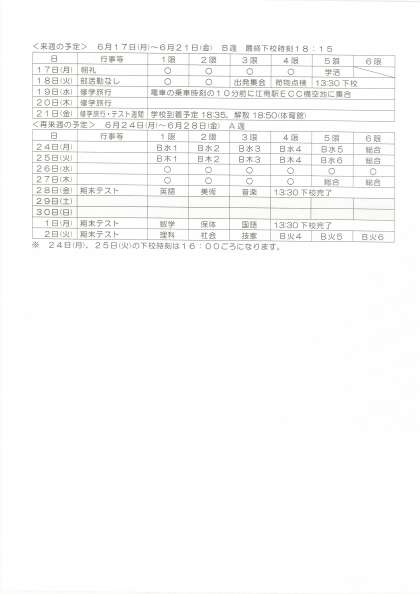 ＜来週の予定＞ 6月17日(月)～6月21日(金) B週 最終下校時刻18：15
日 行事等 1限 2限 3限 4限 5限 6限
17日(月) 朝礼 ○ ○ ○ ○ 学活
18日(火) 部活動なし ○ ○ 出発集会 荷物点検 13:30下校
19日(水) 修学旅行 電車の乗車時刻の10分前に江南駅ECC横空地に集合
20日(木) 修学旅行
21日(金) 修学旅行・テスト週間 学校到着予定18:35、解散18:50(体育館)
＜再来週の予定＞ 6月24日(月)～6月28日(金) A週
日 行事等 1限 2限 3限 4限 5限 6限
24日(月) B水1 B水2 B水3 B水4 B水5 総合
25日(火) B木1 B木2 B木3 B木4 B水6 総合
26日(水) ○ ○ ○ ○ ○ ○
27日(木) ○ ○ ○ ○ 総合 総合
28日(金) 期末テスト 英語 美術 音楽 13:30下校完了
29日(土)
30日(日)
1日(月) 期末テスト 数学 保体 国語 13:30下校完了
2日(火) 期末テスト 理科 社会 技家 B火4 B火5 B火6
※ 24日(月)、25日(火)の下校時刻は16：00ごろになります。